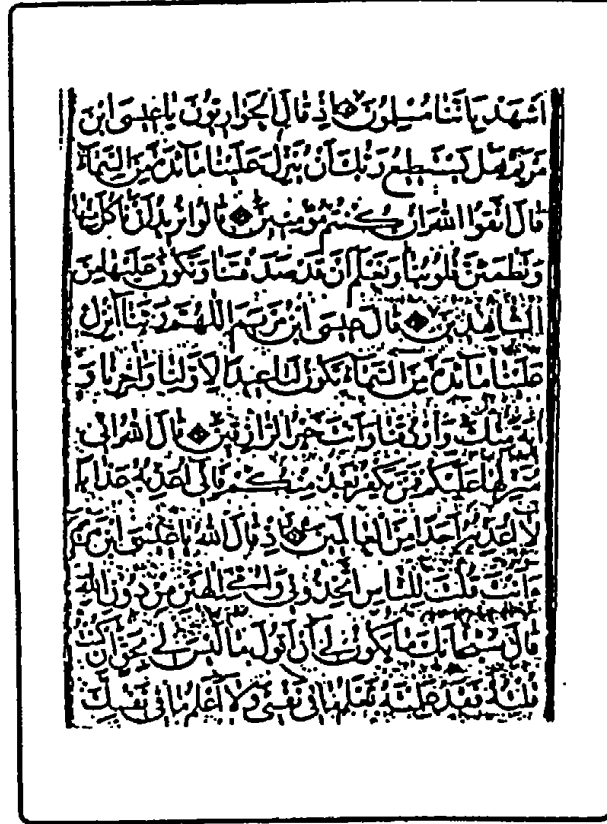 اشهد باننا مسلمون اذ قال الحواريون يا عيسى ابن
مريم هل يستطيع ربك أن ينزل علينا مائدة من السماء
قال اتقوا الله ان كنتم مؤمنين قالوا نريد أن نأكل منها
وتطمئن قلوبنا ونعلم أن قد صدقتنا ونكون عليها من
الشاهدين قال عيسى ابن مريم اللهم ربنا أنزل
علينا مائدة من السماء تكون لنا عيدا لاولنا واخرنا و
اية منك وارزقنا وانت خير الرازقين قال الله اني
منزلها عليكم فمن يكفر بعد منكم فاني اعذبه عذابا
لا اعذبه احدا من العالمين واذ قال الله يا عيسى ابن مريم
ءانت قلت للناس اتخذوني وامي الهين من دون الله
قال سبحانك ما يكون لي أن اقول ما ليس لي بحق ان كنت
قلته فقد علمته تعلم ما في نفسي ولا أعلم ما في نفسك